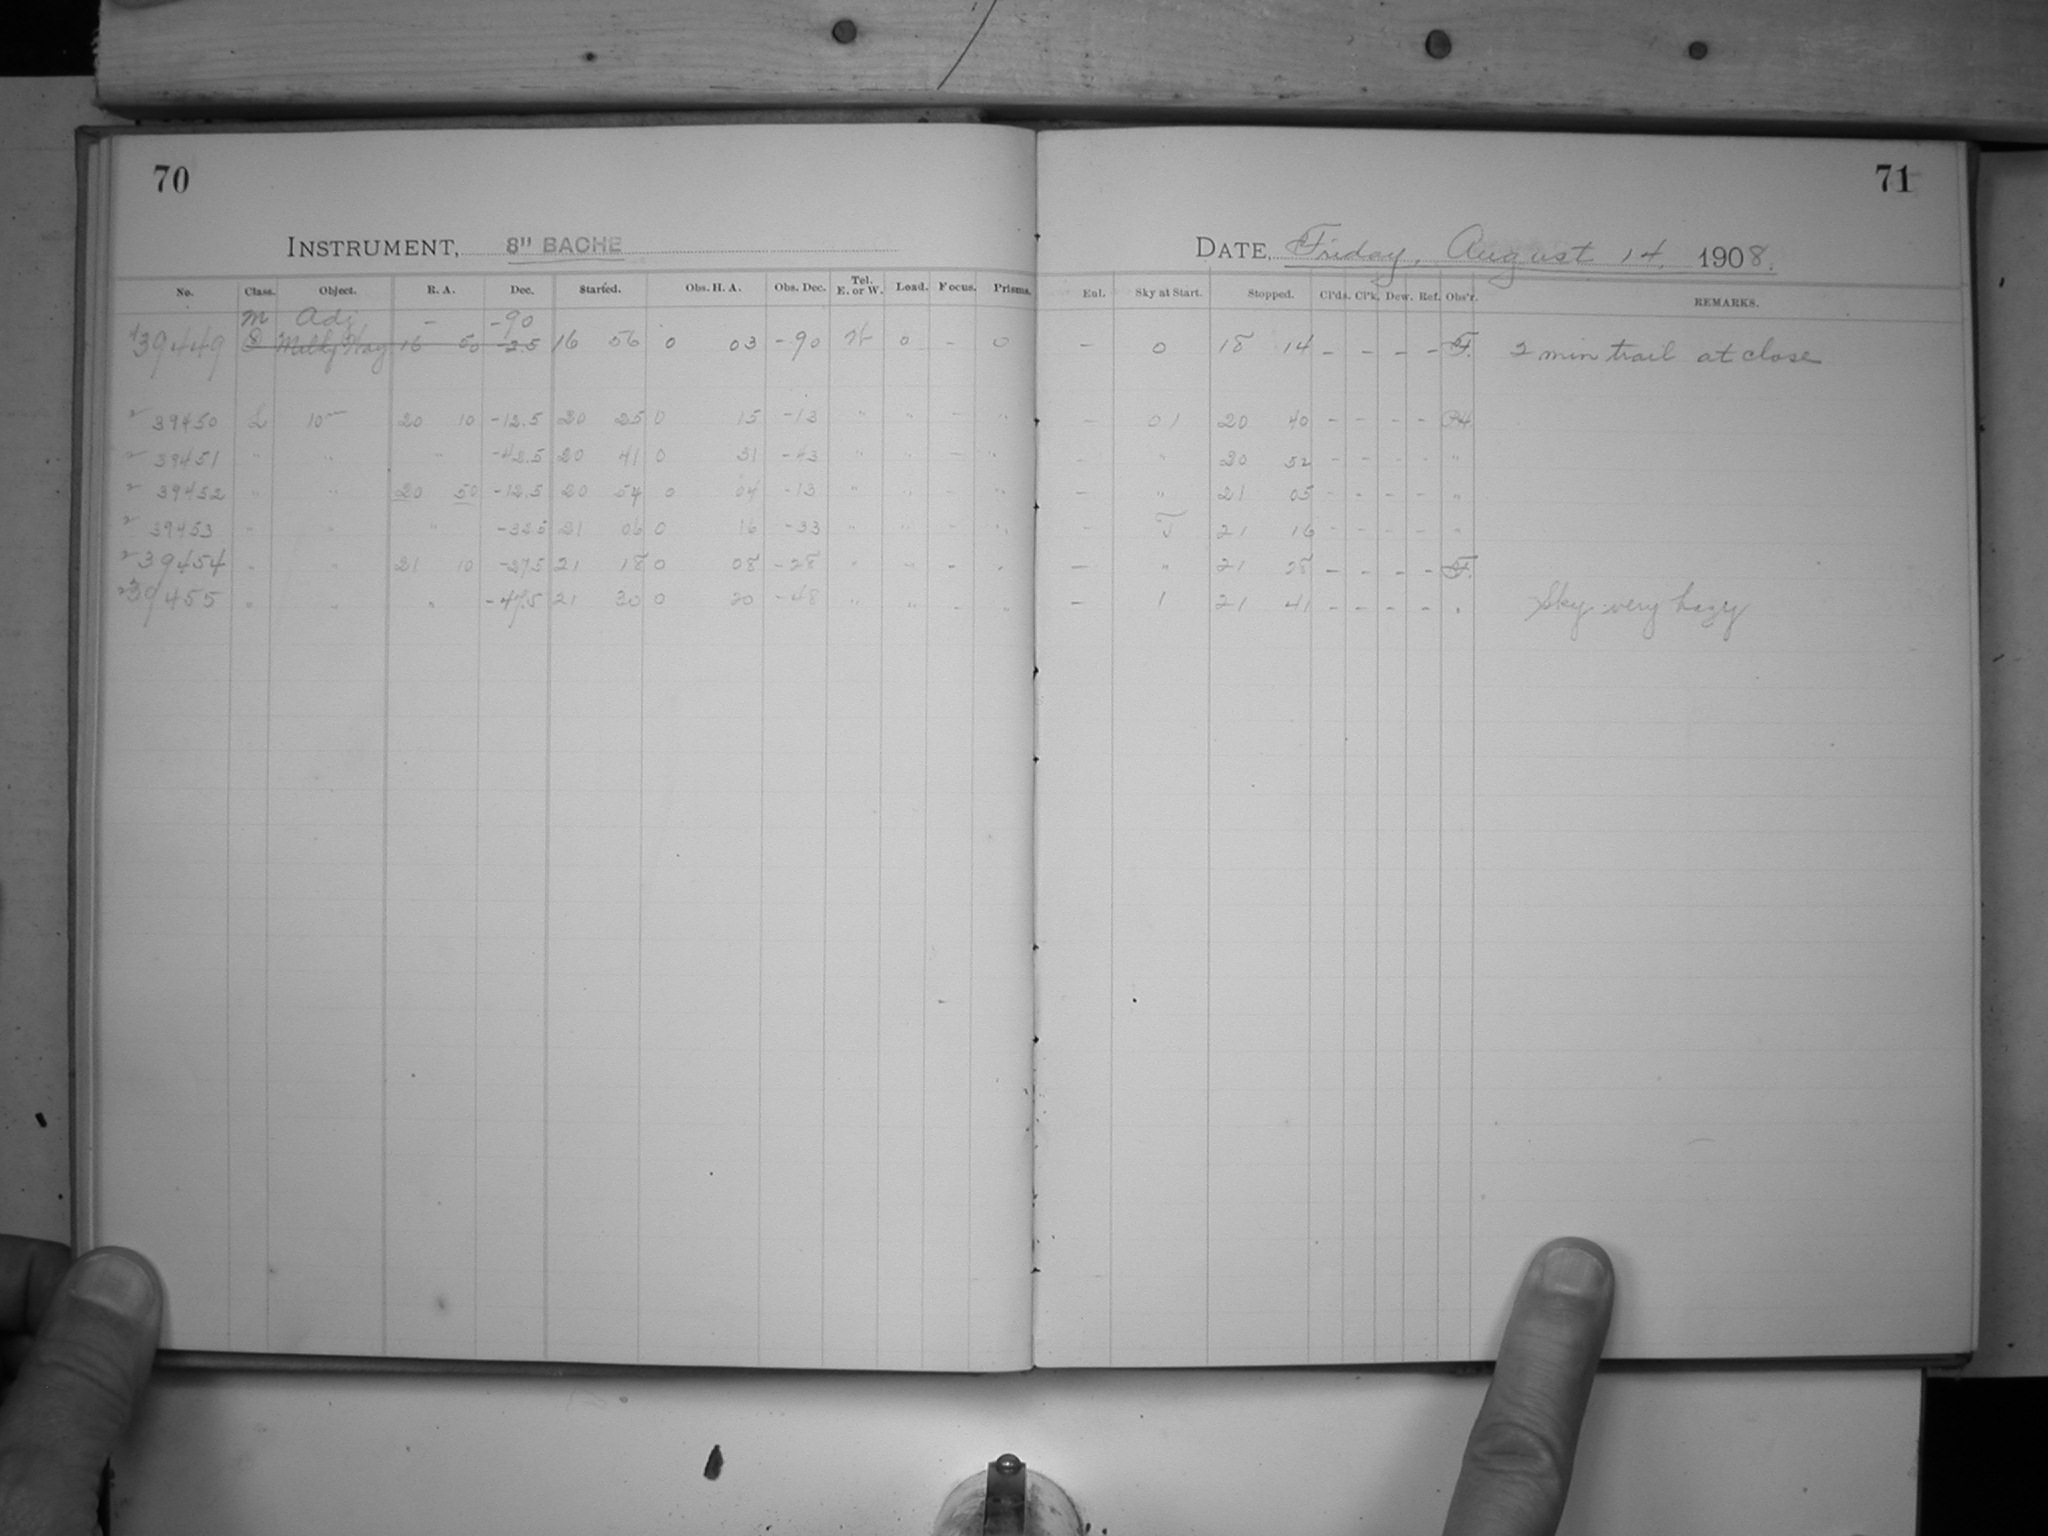 70
71
INSTRUMENT, 8" BACHE
DATE, Friday, August 14, 1908.
No. Class. Object. R. A. Dec. Started. Obs. H. A. Obs. Dec. Tel. E. or W. Load. Focus. Prisms. Enl. Sky at Start. Stopped. Cl'ds. Cl'k. Dew. Ref. Obs'r. REMARKS.
M Adj - -90
39449 Milky Way 16 50 16 56 0 03 -90 0 - 0 - 0 18 14 - - - - F. 2 min trail at close
2 39450 L 10m 20 10 -12.5 20 25 0 15 -13 " " - " - 01 20 40 - - - -
2 39451 " " " -42.5 20 41 0 31 -43 " " - " - " 20 52 - - - - "
2 39452 " " 20 50 -12.5 20 54 0 04 -13 " - " - " 21 05 - - - - "
2 39453 " " " -32.5 21 06 0 16 -33 " " - " - 21 16 - - - - "
2 39454 " " 21 10 -27.5 21 18 0 08 -28 " " - " - " 21 28 - - - - F.
2 39455 " " " -47.5 21 30 0 20 -48 " " - " - 1 21 41 - - - - " Sky very hazy